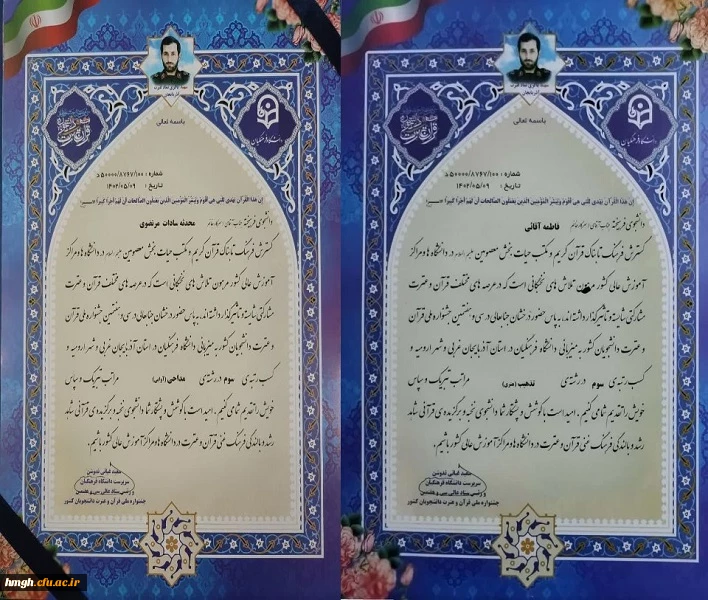 باسمه تعالی
دانشگاه فرهنگیان
شماره : ۵۰۰۰۰/۸۷۶۷/۱۰۰/د
تاریخ : ۱۴۰۲/۰۵/۰۹
إن هذا القرآن یهدی للتی هی أقوم ویبشر المؤمنین الذین یعملون الصالحات أن لهم أجرا کبیرا
دانشجوی فرهیخته جناب آقای/سرکار خانم محدثه سادات مرتضوی
گسترش فرهنگ تابناک قرآن کریم و مکتب حیات بخش معصومین در دانشگاه ها و مراکز
آموزش عالی کشور مرهون تلاش های نخبگانی است که در عرصه های مختلف قرآن و عترت
مشارکتی شایسته و تاثیرگذار داشته اند. به پاس حضور درخشان جنابعالی در سی و هفتمین جشنواره ملی قرآن
و عترت دانشجویان کشور به میزبانی دانشگاه فرهنگیان در استان آذربایجان غربی و شهر ارومیه و
کسب رتبه ی سوم در رشته ی مداحی (آوایی) مراتب تبریک و سپاس
خویش را تقدیم شما می کنم. امید است با کوشش و پشتکار شما دانشجوی نخبه و برگزیده ی قرآنی شاهد
رشد و بالندگی فرهنگ غنی قرآن و عترت در دانشگاه ها و مراکز آموزش عالی کشور باشیم.
سرپرست دانشگاه فرهنگیان
و رئیس ستاد عالی سی و هفتمین
جشنواره ملی قرآن و عترت دانشجویان کشور
باسمه تعالی
دانشگاه فرهنگیان
شماره : ۵۰۰۰۰/۸۷۶۷/۱۰۰/د
تاریخ : ۱۴۰۲/۰۵/۰۹
إن هذا القرآن یهدی للتی هی أقوم ویبشر المؤمنین الذین یعملون الصالحات أن لهم أجرا کبیرا
دانشجوی فرهیخته جناب آقای/سرکار خانم فاطمه آقائی
گسترش فرهنگ تابناک قرآن کریم و مکتب حیات بخش معصومین در دانشگاه ها و مراکز
آموزش عالی کشور مرهون تلاش های نخبگانی است که در عرصه های مختلف قرآن و عترت
مشارکتی شایسته و تاثیرگذار داشته اند. به پاس حضور درخشان جنابعالی در سی و هفتمین جشنواره ملی قرآن
و عترت دانشجویان کشور به میزبانی دانشگاه فرهنگیان در استان آذربایجان غربی و شهر ارومیه و
کسب رتبه ی سوم در رشته ی تذهیب (هنری) مراتب تبریک و سپاس
خویش را تقدیم شما می کنم. امید است با کوشش و پشتکار شما دانشجوی نخبه و برگزیده ی قرآنی شاهد
رشد و بالندگی فرهنگ غنی قرآن و عترت در دانشگاه ها و مراکز آموزش عالی کشور باشیم.
سرپرست دانشگاه فرهنگیان
و رئیس ستاد عالی سی و هفتمین
جشنواره ملی قرآن و عترت دانشجویان کشور
hmgh.cfu.ac.ir